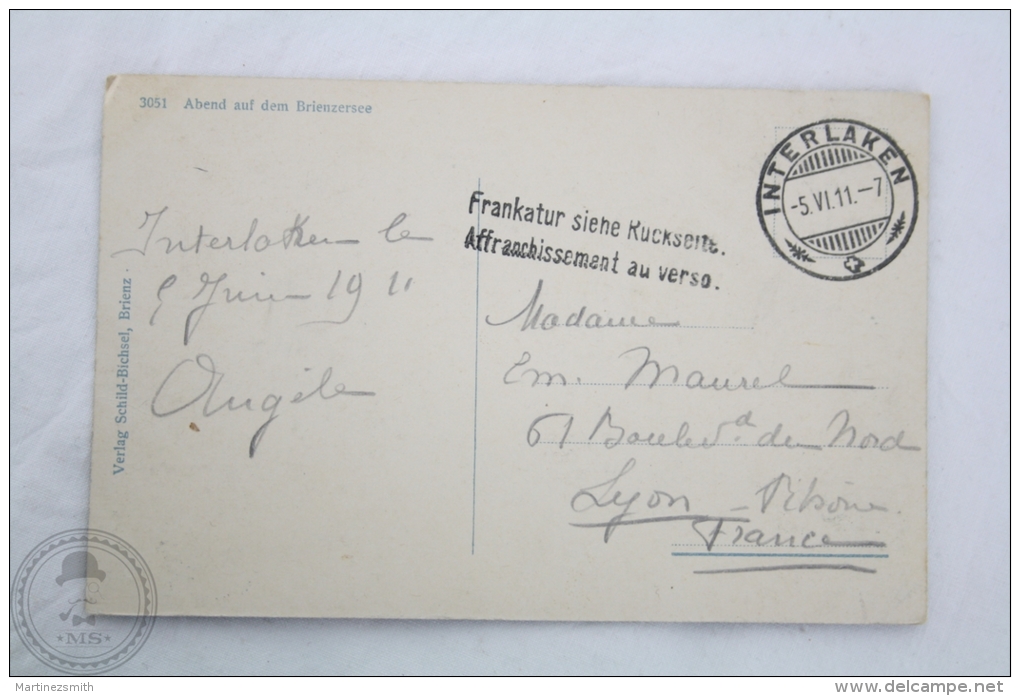 3051 Abend auf dem Brienzersee
INTERLAKEN
-5.VI.11.-7
Frankatur siehe Rückseite.
Affranchissement au verso.
Interlaken le
5 Juin 1911
Angèle
Verlag Schild-Bichsel, Brienz
Madame
Em. Maurel
61 Boulevd du Nord
Lyon - Rhône
France
★MS★
Martinezsmith
www.delcampe.net